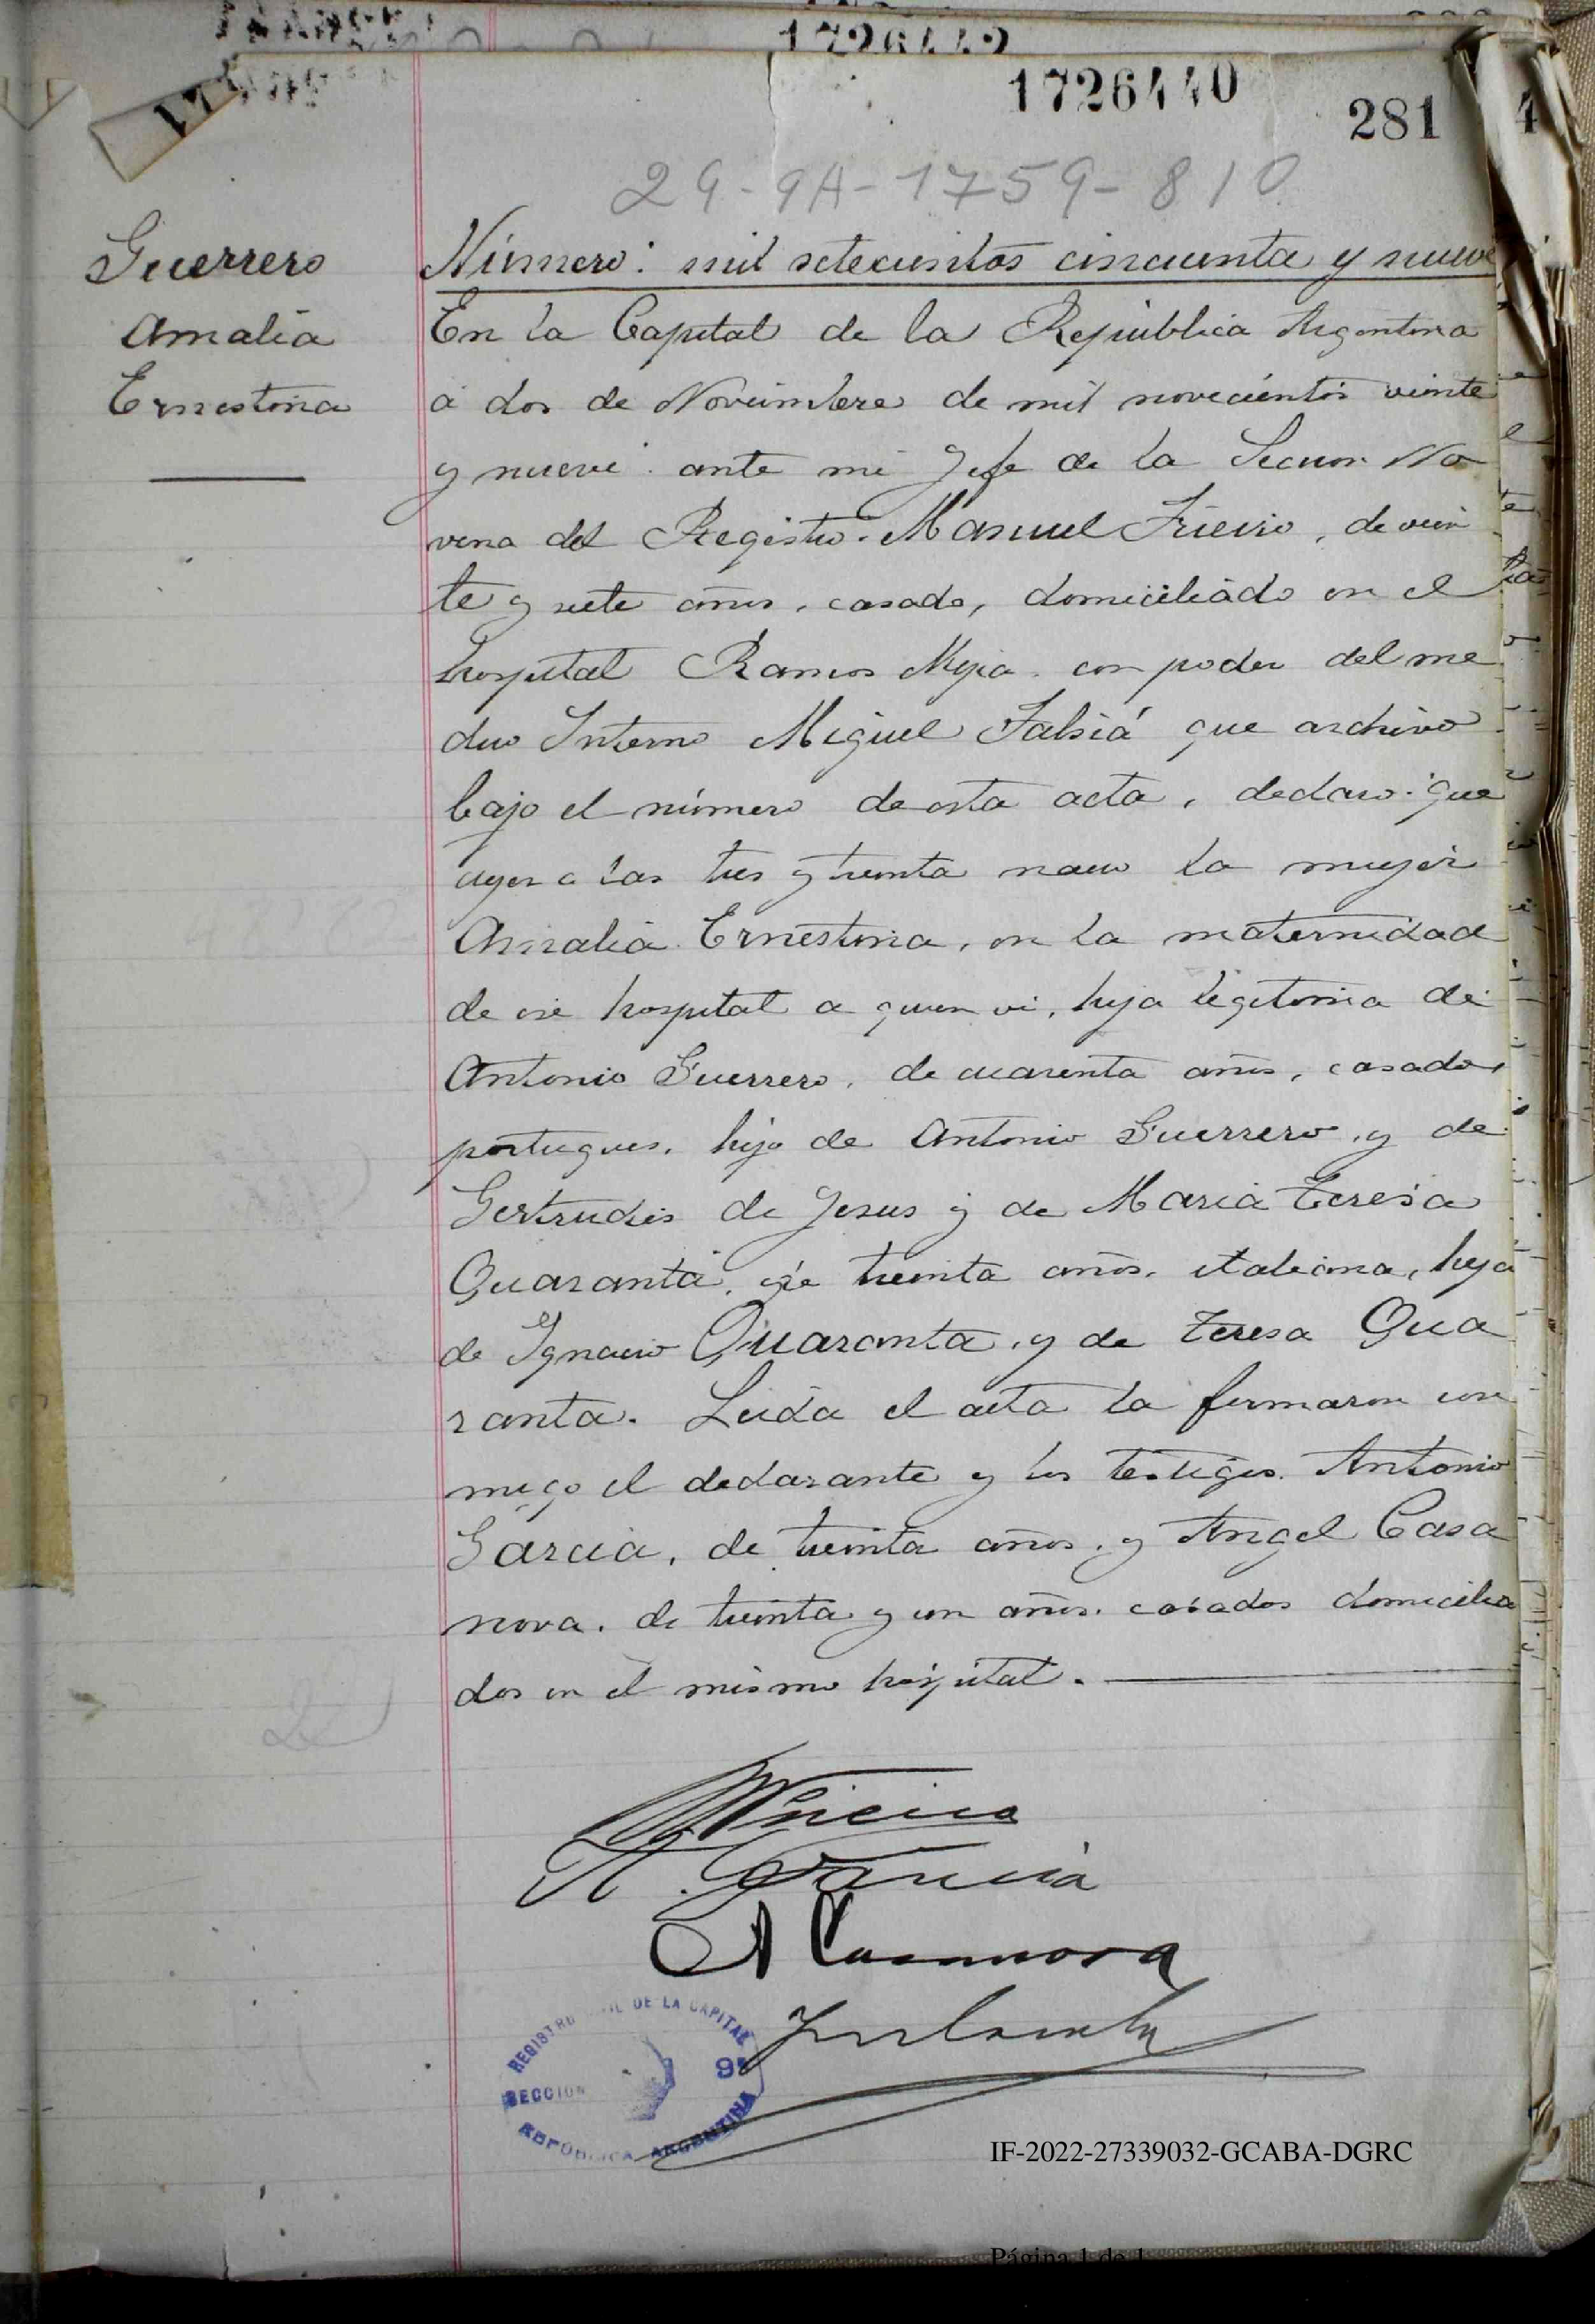 1726442
1726440
281
4
29-9A-1759-810
Guerrero
Amalia
Ernestina
Número: mil setecientos cincuenta y nueve
En la Capital de la República Argentina
á dos de Noviembre de mil novecientos veinte
y nueve. ante mi Jefe de la Seccion No
vena del Registro. Manuel Frieiro, de vein
te y siete años, casado, domiciliado en el
hospital Ramos Mejia. con poder del me
dico Interno Miguel Falsiá que archivo
bajo el número de esta acta, declaro: que
ayer a las tres y treinta nacio la mujer
Amalia Ernestina, en la maternidad
de ese hospital a quien vi, hija legitima de
Antonio Guerrero, de cuarenta años, casado,
portugues, hijo de Antonio Guerrero, y de
Gertrudis de Jesus y de Maria Teresa
Quaranta, de treinta años, italiana, hija
de Ignacio Quaranta, y de Teresa Qua
ranta. Leida el acta la firmaron con
migo el declarante y los testigos. Antonio
Garcia, de treinta años, y Angel Casa
nova. de treinta y un años. casados domicilia
dos en el mismo hospital.
MFrieiro
A. Garcia
A Casanova
REGISTRO CIVIL DE LA CAPITAL
SECCION 9ª
REPÚBLICA ARGENTINA
IF-2022-27339032-GCABA-DGRC
Página 1 de 1